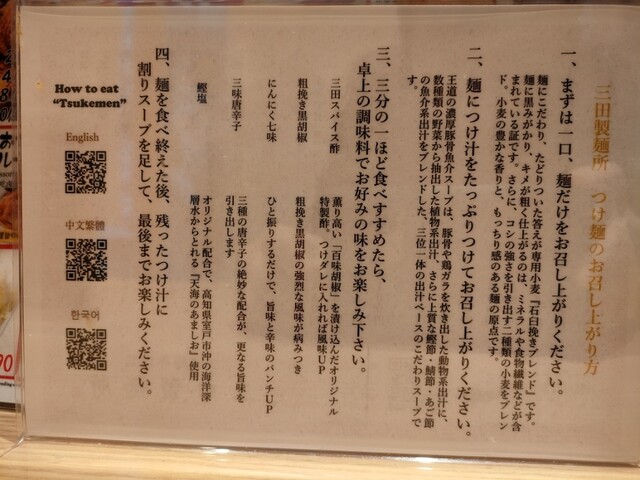 三田製麺所　つけ麺のお召し上がり方
一、まずは一口、麺だけをお召し上がりください。
麺にこだわり、たどりついた答えが専用小麦『石臼挽きブレンド』です。
麺に黒みがかり、キメが粗く仕上がるのは、ミネラルや食物繊維などが含
まれている証です。さらに、コシの強さを引き出す二種類の小麦をブレン
ド。小麦の豊かな香りと、もっちり感のある麺の原点です。
二、麺につけ汁をたっぷりつけてお召し上がりください。
王道の濃厚豚骨魚介スープは、豚骨や鶏ガラを炊き出した動物系出汁に、
数種類の野菜から抽出した植物系出汁、さらに上質な鰹節・鯖節・あご節
の魚介系出汁をブレンドした、三位一体の出汁ベースのこだわりスープで
す。
三、三分の一ほど食べすすめたら、
卓上の調味料でお好みの味をお楽しみ下さい。
三田スパイス酢　薫り高い「百味胡椒」を漬け込んだオリジナル
特製酢。つけダレに入れれば風味UP
粗挽き黒胡椒　粗挽き黒胡椒の強烈な風味が病みつき
にんにく七味　ひと振りするだけで、旨味と辛味のパンチUP
三味唐辛子　三種の唐辛子の絶妙な配合が、更なる旨味を
引き出します
鰹塩　オリジナル配合で、高知県室戸市沖の海洋深
層水からとれる「天海のあましお」使用
四、麺を食べ終えた後、残ったつけ汁に
割りスープを足して、最後までお楽しみください。
How to eat
“Tsukemen”
English
中文繁體
한국어